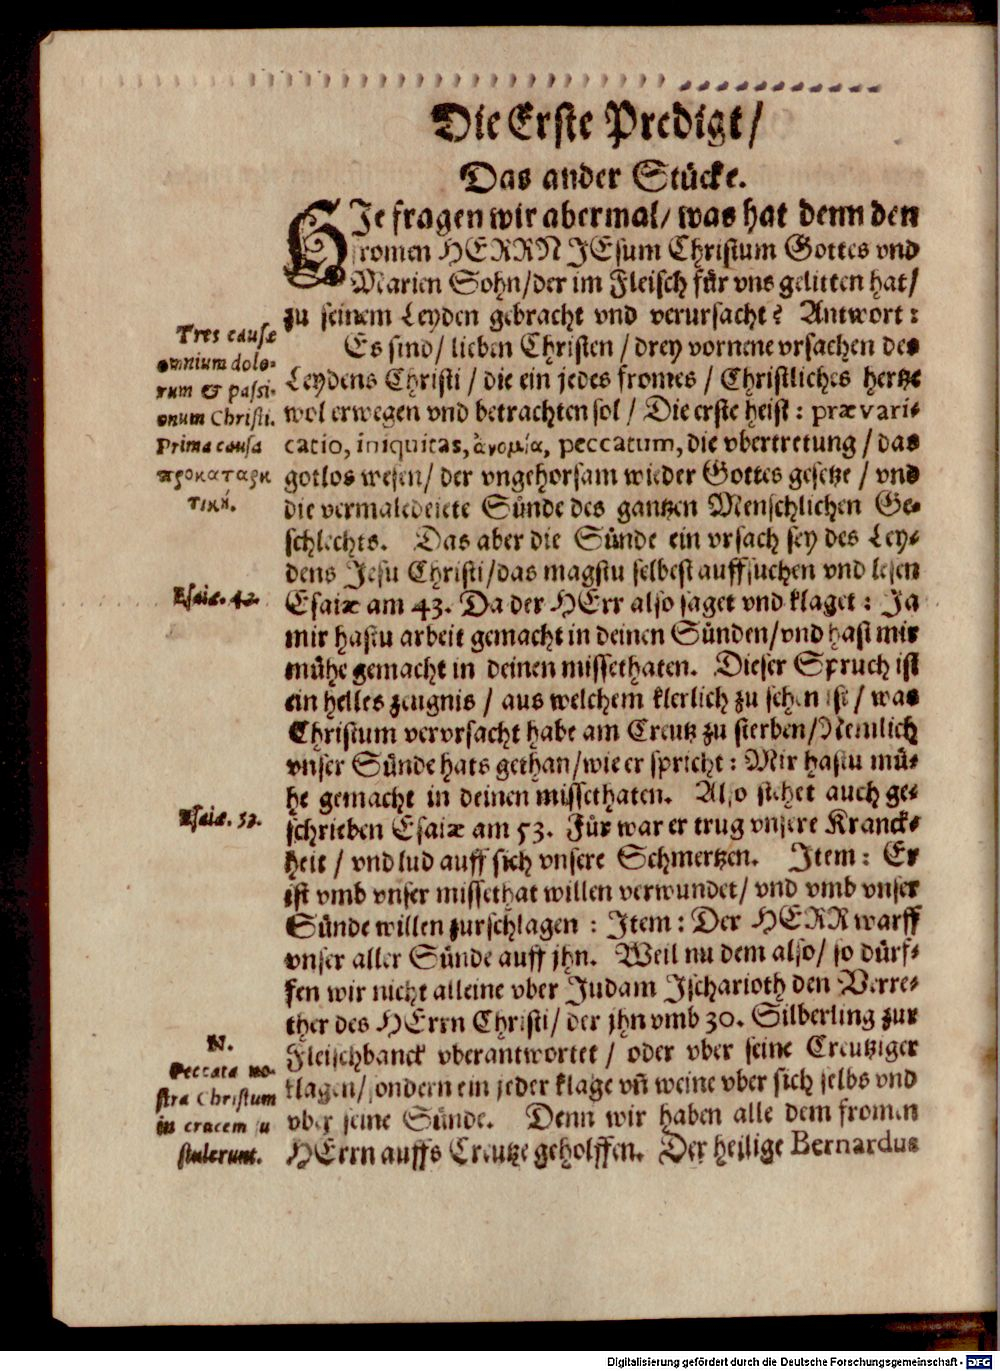 Die Erste Predigt/
Das ander Stücke.
HIe fragen wir abermal/ was hat denn den
fromen HERRN JEsum Christum Gottes vnd
Marien Sohn/der im Fleisch für vns gelitten hat/
zu seinem Leyden gebracht vnd verursacht? Antwort:
Es sind/ lieben Christen/drey vornene vrsachen des
Leydens Christi/ die ein jedes fromes/ Christliches hertze
wol erwegen vnd betrachten sol/ Die erste heist: prævari-
catio, iniquitas, ἀνομία, peccatum, die vbertretung/ das
gotlos wesen/ der vngehorsam wieder Gottes gesetze/ vnd
die vermaledeiete Sünde des gantzen Menschlichen Ge-
schlechts. Das aber die Sünde ein vrsach sey des Ley-
dens Jesu Christi/das magstu selbest auffsuchen vnd lesen
Esaiæ am 43. Da der HErr also saget vnd klaget: Ja
mir hastu arbeit gemacht in deinen Sünden/vnd hast mir
mühe gemacht in deinen missethaten. Dieser Spruch ist
ein helles zeugnis/ aus welchem klerlich zu sehen ist/ was
Christum vervrsacht habe am Creutz zu sterben/Nemlich
vnser Sünde hats gethan/wie er spricht: Mir hastu mü-
he gemacht in deinen missethaten. Also stehet auch ge-
schrieben Esaiæ am 53. Für war er trug vnsere Kranck-
heit/ vnd lud auff sich vnsere Schmertzen. Item: Er
ist vmb vnser missethat willen verwundet/ vnd vmb vnser
Sünde willen zurschlagen: Item: Der HERR warff
vnser aller Sünde auff jhn. Weil nu dem also/ so dürf-
fen wir nicht alleine vber Judam Ischarioth den Verre-
ther des HErrn Christi/ der jhn vmb 30. Silberling zur
Fleischbanck vberantwortet/ oder vber seine Creutziger
klagen/ sondern ein jeder klage vñ weine vber sich selbs vnd
vber seine Sünde. Denn wir haben alle dem fromen
HErrn auffs Creutze geholffen. Der heilige Bernardus
Tres causæ
omnium dolo-
rum & passi-
onum Christi.
Prima causa
προκαταρκ
τική.
Esaiæ. 43.
Esaiæ. 53.
N.
Peccata no-
stra Christum
in crucem su
stulerunt.
Digitalisierung gefördert durch die Deutsche Forschungsgemeinschaft - DFG